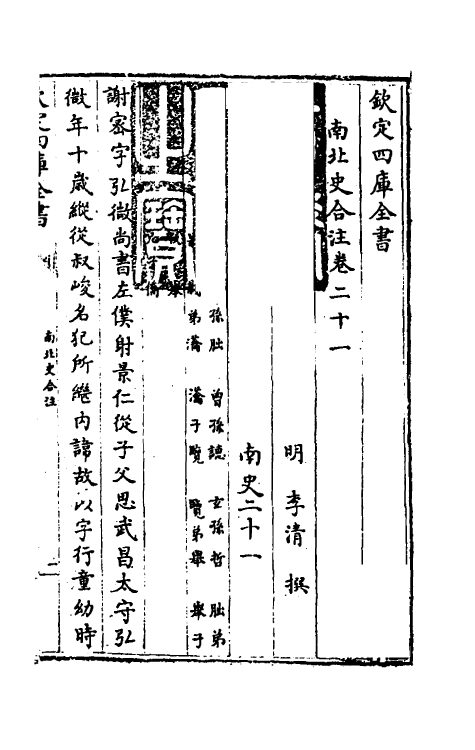 欽定四庫全書
南北史合注卷二十一
明 李清 撰
南史二十一
孫朏 曾孫譓 玄孫哲 朏弟
弟瀹 瀹子覽 覽弟舉 舉子
謝密字弘微尚書左僕射景仁從子父思武昌太守弘
微年十歳繼從叔峻名犯所繼内諱故以字行童幼時
欽定四庫全書
南北史合注